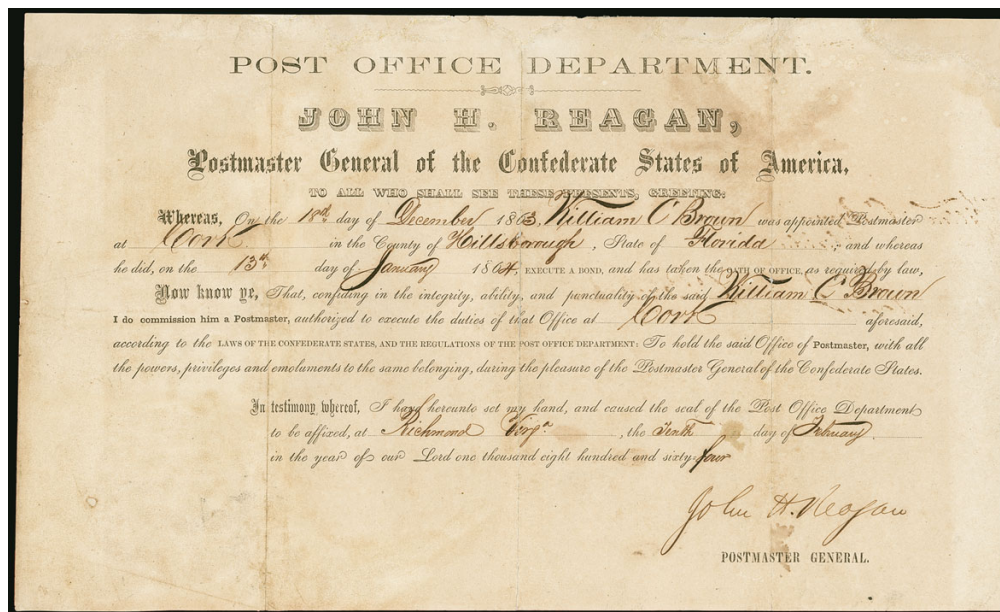 POST OFFICE DEPARTMENT.
JOHN H. REAGAN,
Postmaster General of the Confederate States of America,
TO ALL WHO SHALL SEE THESE PRESENTS, GREETING:
Whereas, On the 18th day of December 1863, William C Brown was appointed Postmaster
at Cork in the County of Hillsborough, State of Florida and whereas
he did, on the 13th day of January 1864, EXECUTE A BOND, and has taken the OATH OF OFFICE, as required by law,
Now know ye, That, confiding in the integrity, ability, and punctuality of the said William C Brown
I do commission him a Postmaster, authorized to execute the duties of that Office at Cork aforesaid,
according to the LAWS OF THE CONFEDERATE STATES, AND THE REGULATIONS OF THE POST OFFICE DEPARTMENT: To hold the said Office of Postmaster, with all
the powers, privileges and emoluments to the same belonging, during the pleasure of the Postmaster General of the Confederate States.
In testimony whereof, I have hereunto set my hand, and caused the seal of the Post Office Department
to be affixed, at Richmond Virga, the Tenth day of February
in the year of our Lord one thousand eight hundred and sixty-four
John H. Reagan
POSTMASTER GENERAL.